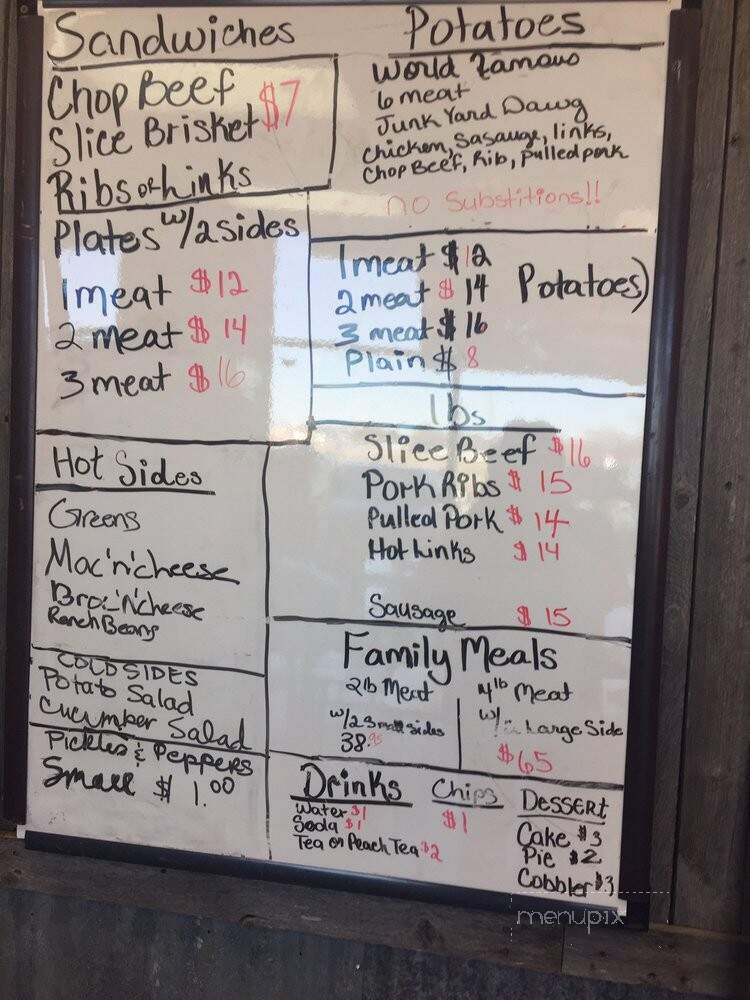 Sandwiches
Chop Beef
Slice Brisket $7
Ribs or Links
Plates w/2 sides
1 meat $12
2 meat $14
3 meat $16
Hot Sides
Greens
Mac'n'cheese
Broc'n'cheese
Ranch Beans
COLD SIDES
Potato Salad
Cucumber Salad
Pickles & Peppers
Small $1.00
Potatoes
World Famous
6 meat
Junk Yard Dawg
Chicken, Sasauge, links,
Chop Beef, Rib, Pulled pork
no Substitions!!
1 meat $12
2 meat $14
3 meat $16
Plain $8
Potatoes)
lbs
Slice Beef $16
Pork Ribs $15
Pulled Pork $14
Hot Links $14
Sausage $15
Family Meals
2lb Meat
w/2 Small sides
38.95
4lb Meat
w/ Large Side
$65
Drinks
Water $1
Soda $1
Tea or Peach Tea $2
Chips
$1
Dessert
Cake $3
Pie $2
Cobbler $3
menupix